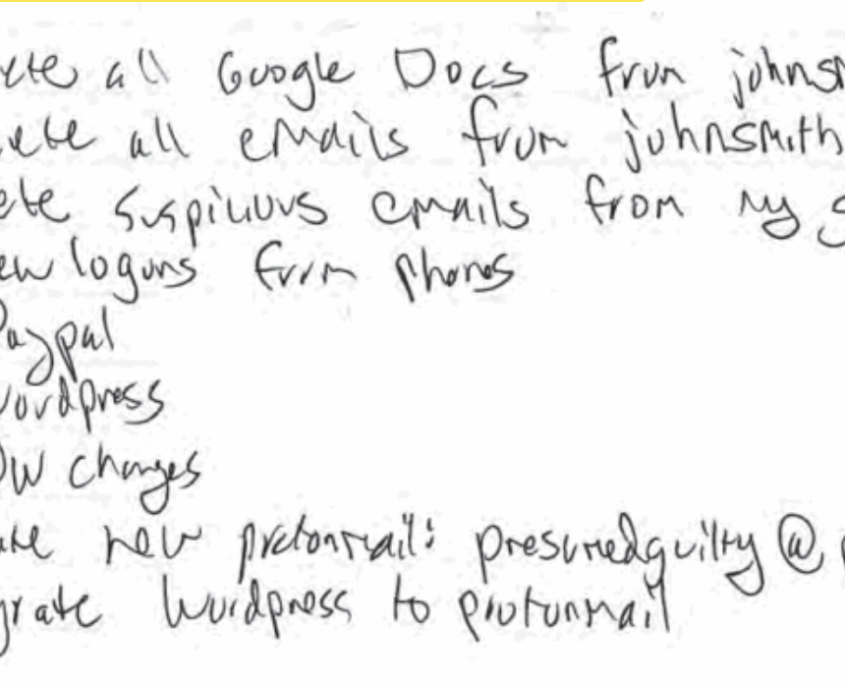 ete all Google Docs from johnsm
lete all emails from johnsmith
ete suspicious emails from my g
ew logons from phones
Paypal
wordpress
PW changes
ate new protonmail: presumedguilty@ p
grate Wordpress to protonmail